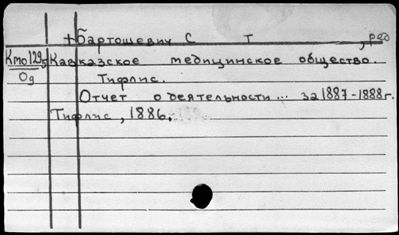 +Бартошевич С Т , ред
Кто129, Кавказское медицинское общество.
Од Тифлис.
Отчет о деятельности... за 1887-1888г.
Тифлис, 1886.